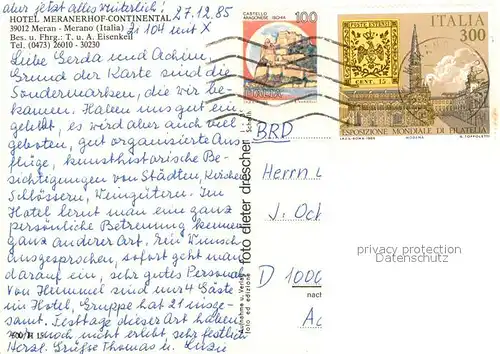 aber jetzt alles winterlich!
HOTEL MERANERHOF-CONTINENTAL
27.12.85
39012 Meran - Merano (Italia)
Bes. u. Fhrg.: T. u. A. Eisenkeil
Tel. (0473) 26010 - 30230
Liebe Gerda und Achim,
Grund der Karte sind die
Sondermarken, die wir be-
kamen. Haben uns gut ein-
gelebt, es wird aber auch viel
geboten, gut organisierte Aus-
flüge, kunsthistorische Be-
sichtigungen von Städten, Kirchen
Schlössern, Weingütern. Im
Hotel lernt man eine ganz
persönliche Betreuung kennen
ganz anderer Art. Ein Wunsch
ausgesprochen, sofort geht man
darauf ein, sehr gutes Personal
von Hummel sind nur 4 Gäste
im Hotel, Gruppe hat 21 insge-
samt. Festtage dieser Art haben
wir noch nicht erlebt sehr festlich
Herzl. Grüße Thomas u.
400/H
foto dieter drescher
Aufnahme u. Verlag
foto ed edizione
CASTELLO
ARAGONESE ISCHIA
100
POSTE ESTENSI
CENT. 15
ITALIA
300
ESPOSIZIONE MONDIALE DI FILATELIA
MODENA
R. TOFFOLETTI
BRD
Herrn
J. Och
D 1000
nach
privacy protection
Datenschutz